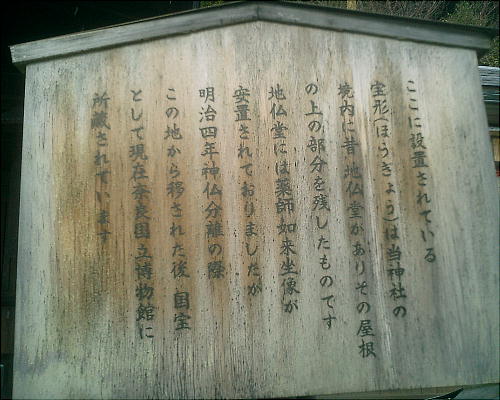 ここに設置されている
宝形(ほうきょう)は当神社の
境内に昔地仏堂がありその屋根
の上の部分を残したものです
地仏堂には薬師如来坐像が
安置されておりましたが
明治四年神仏分離の際
この地から移された後 国宝
として現在奈良国立博物館に
所蔵されています